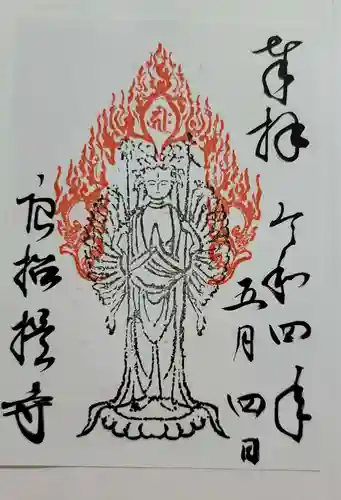 奉拝
令和四年
五月四日
唐招提寺